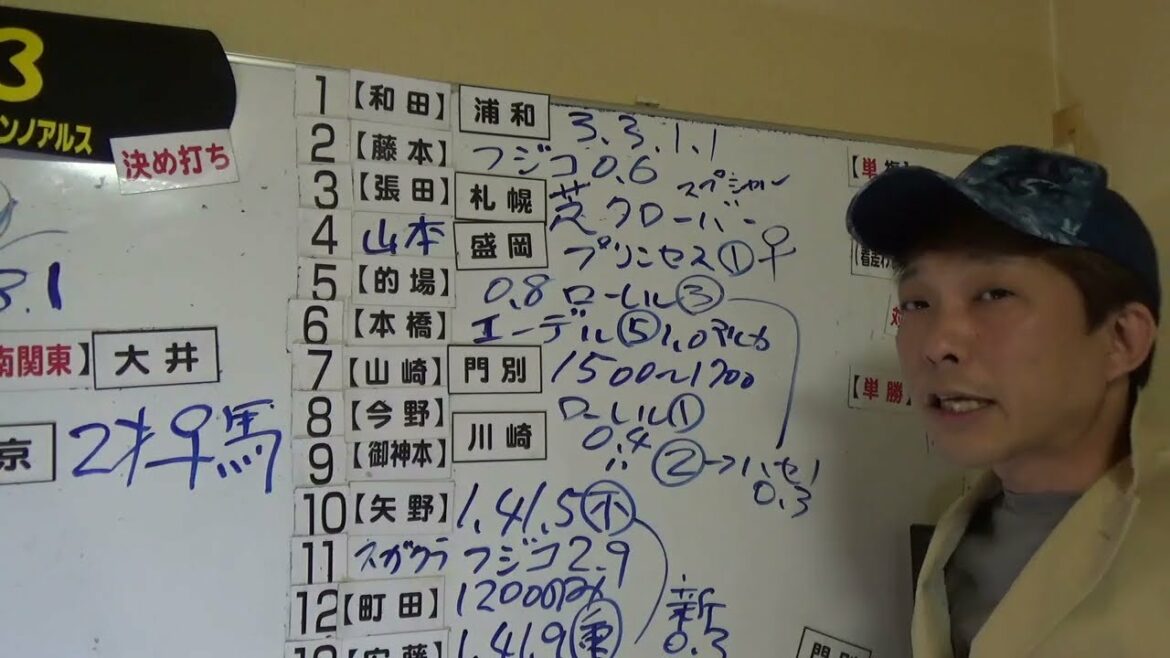 3
ンノアルス
決め打ち
3.1
南関東】 大井
京 2才牝馬
1 【和田】 浦和 3.3.1.1
2 【藤本】 フジコ0.6
3 【張田】 札幌 芝クローバー スペシャル
4 山本 盛岡 プリンセス①♀
5 【的場】 0.8 ローレル③
6 【本橋】 エーデル⑤1.0
7 【山崎】 門別 1500〜1700
8 【今野】 川崎 ローレル① 0.4
9 【御神本】 〃②→ハセノ 0.3
10 【矢野】 1.41.5
11 スガワラ フジコ2.9
12 【町田】 1200のみ
安藤】 1.41.9 新 0.3
【単
【単勝】
門